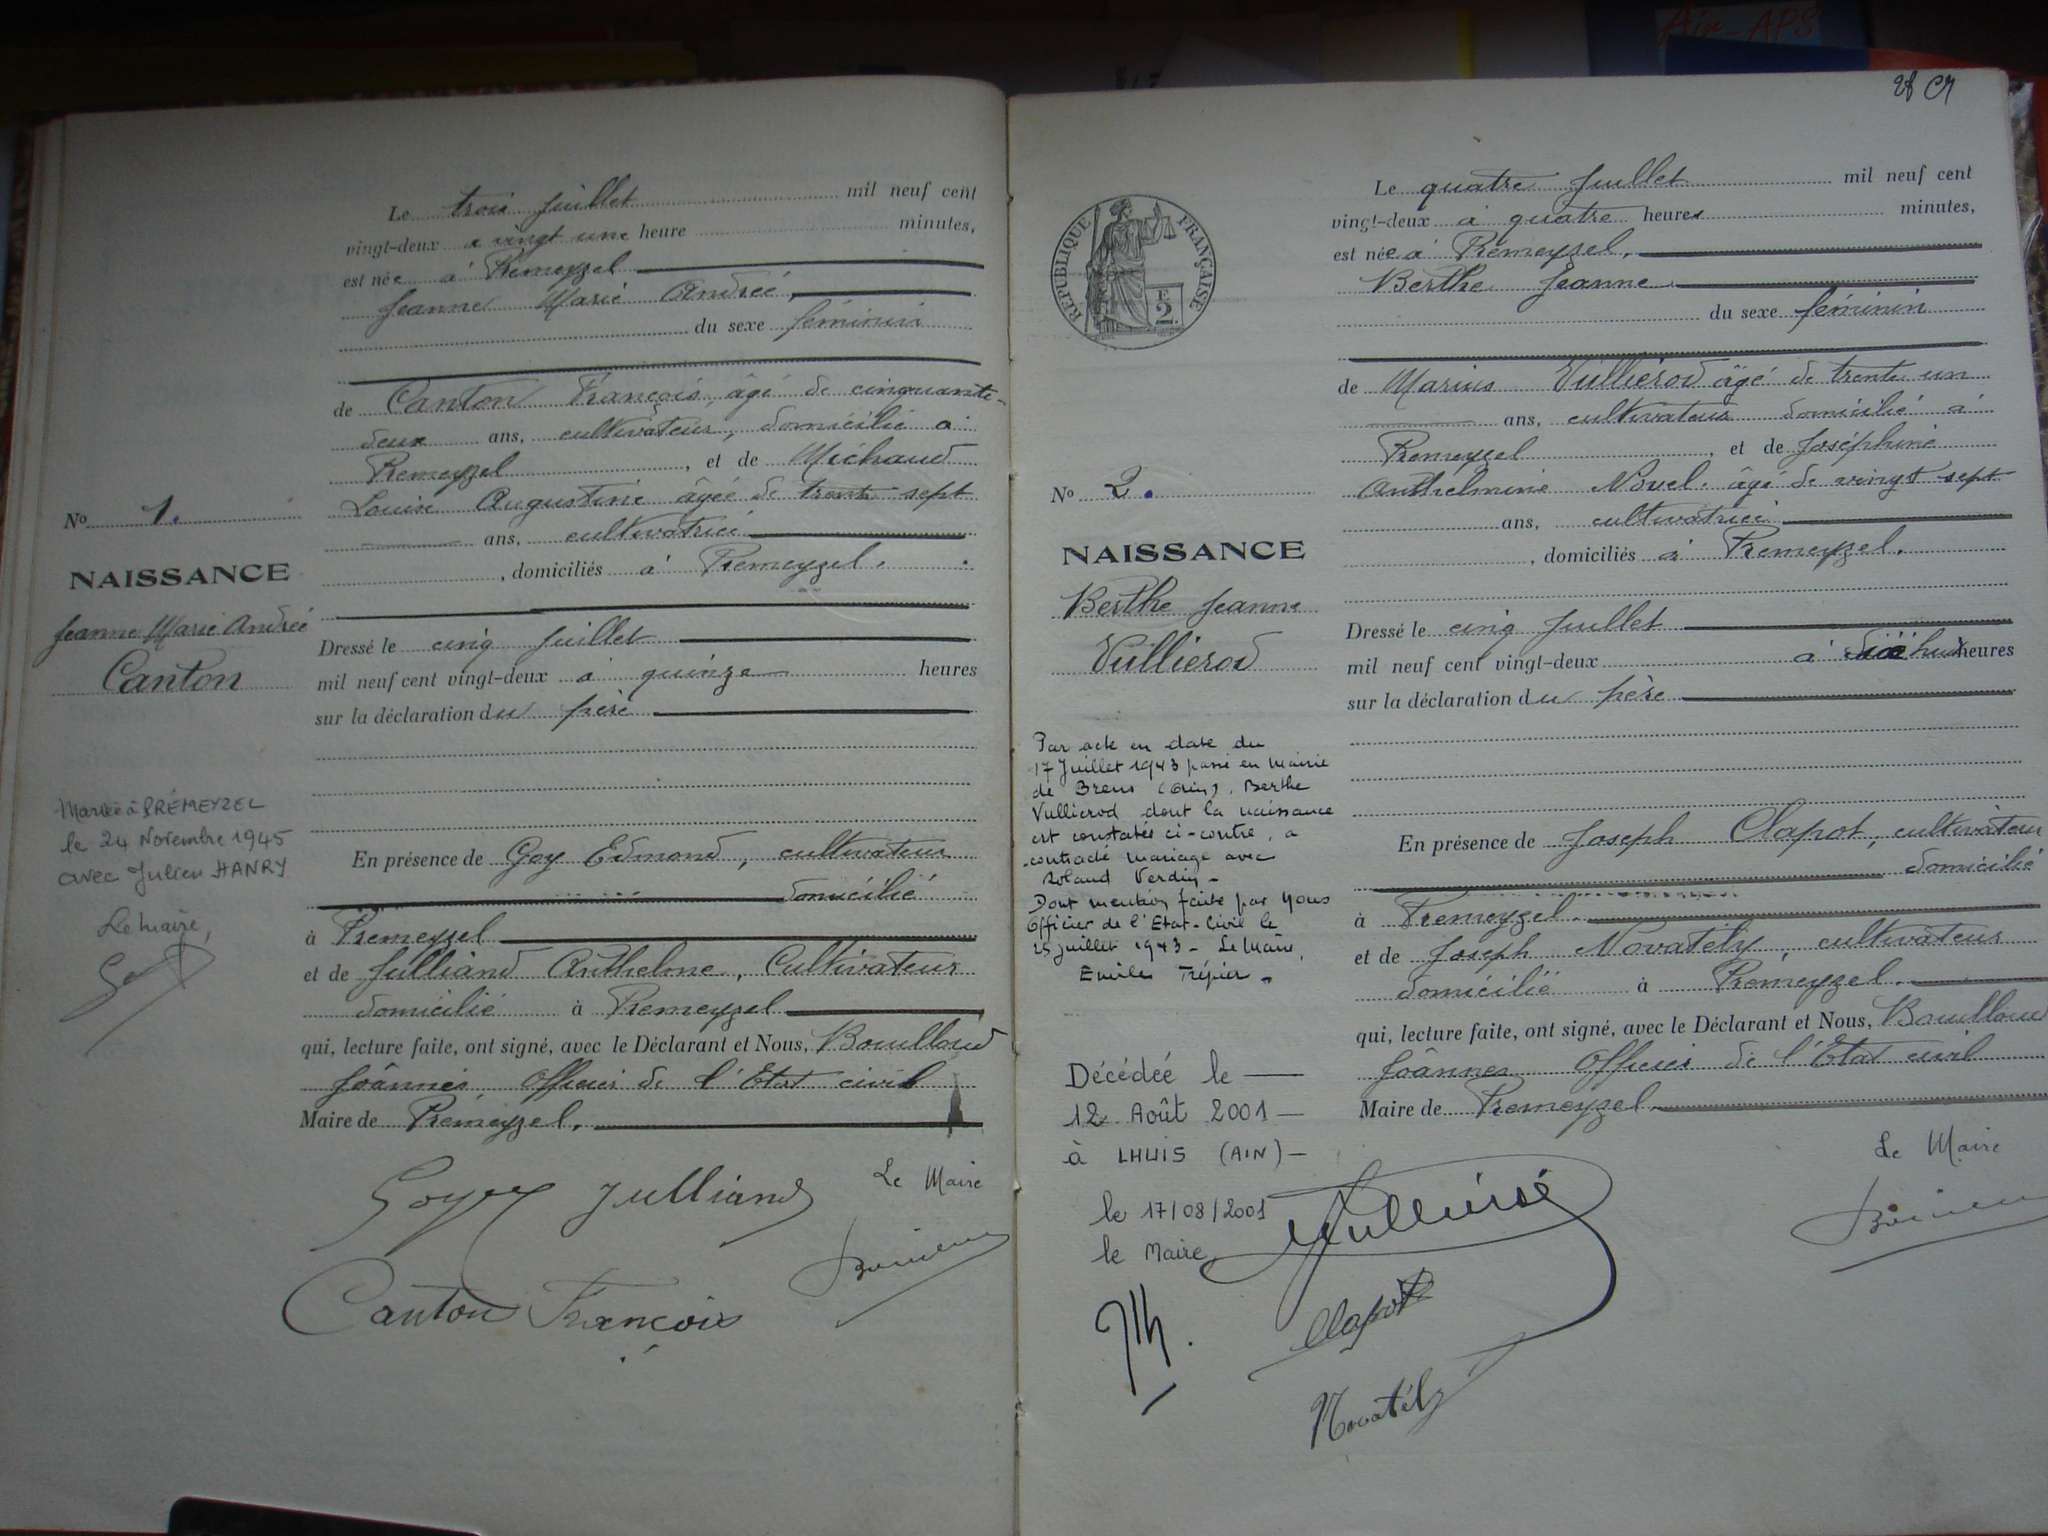 Le trois juillet mil neuf cent
vingt-deux à vingt une heure minutes,
est née à Prémeyzel
Jeanne Marie Andrée,
du sexe féminin
de Canton François, âgé de cinquante-
deux ans, cultivateur, domicilié à
Premeyzel, et de Michaud
Louise Augustine âgée de trente sept
ans, cultivatrice
, domiciliés à Premeyzel.
No 1.
NAISSANCE
Jeanne Marie Andrée
Canton
Dressé le cinq juillet
mil neuf cent vingt-deux à quinze heures
sur la déclaration du père
Mariée à PRÉMEYZEL
le 24 Novembre 1945
avec Julien HANRY
Le maire,
En présence de Goy Edmond, cultivateur
domicilié
à Premeyzel
et de Julliand Anthelme, Cultivateur
domicilié à Premeyzel
qui, lecture faite, ont signé, avec le Déclarant et Nous, Bouilloud
Joânnès Officier de l'Etat civil
Maire de Prémeyzel.
Goy Julliand Le Maire
Canton François
28
Le quatre juillet mil neuf cent
vingt-deux à quatre heures minutes,
est née à Prémeyzel.
Berthe Jeanne
du sexe féminin
RÉPUBLIQUE FRANÇAISE
2
de Marius Vullierod âgé de trente un
ans, cultivateur domicilié à
Premeyzel, et de Joséphine
Anthelmine Novel. âgé de vingt-sept
ans, cultivatrice
, domiciliés à Premeyzel.
No 2.
NAISSANCE
Berthe Jeanne
Vullierod
Dressé le cinq juillet
mil neuf cent vingt-deux à heures
sur la déclaration du père
Par acte en date du
17 Juillet 1943 passé en Mairie
de Brens (Ain), Berthe
Vullierod dont la naissance
est constatée ci-contre, a
contracté mariage avec
Roland Verdin -
Dont mention faite par Nous
Officier de l'Etat-Civil le
25 juillet 1943 - Le Maire,
Emile Trépier.
En présence de Joseph Clapot, cultivateur
domicilié
à Premeyzel.
et de Joseph Novatély, cultivateur
domicilié à Premeyzel.
qui, lecture faite, ont signé, avec le Déclarant et Nous, Bouilloud
Joânnès Officier de l'Etat civil
Maire de Premeyzel.
Décédée le —
12 Août 2001 —
à LHUIS (AIN) —
le 17/08/2001
le Maire
Le Maire
Clapot
Novatély